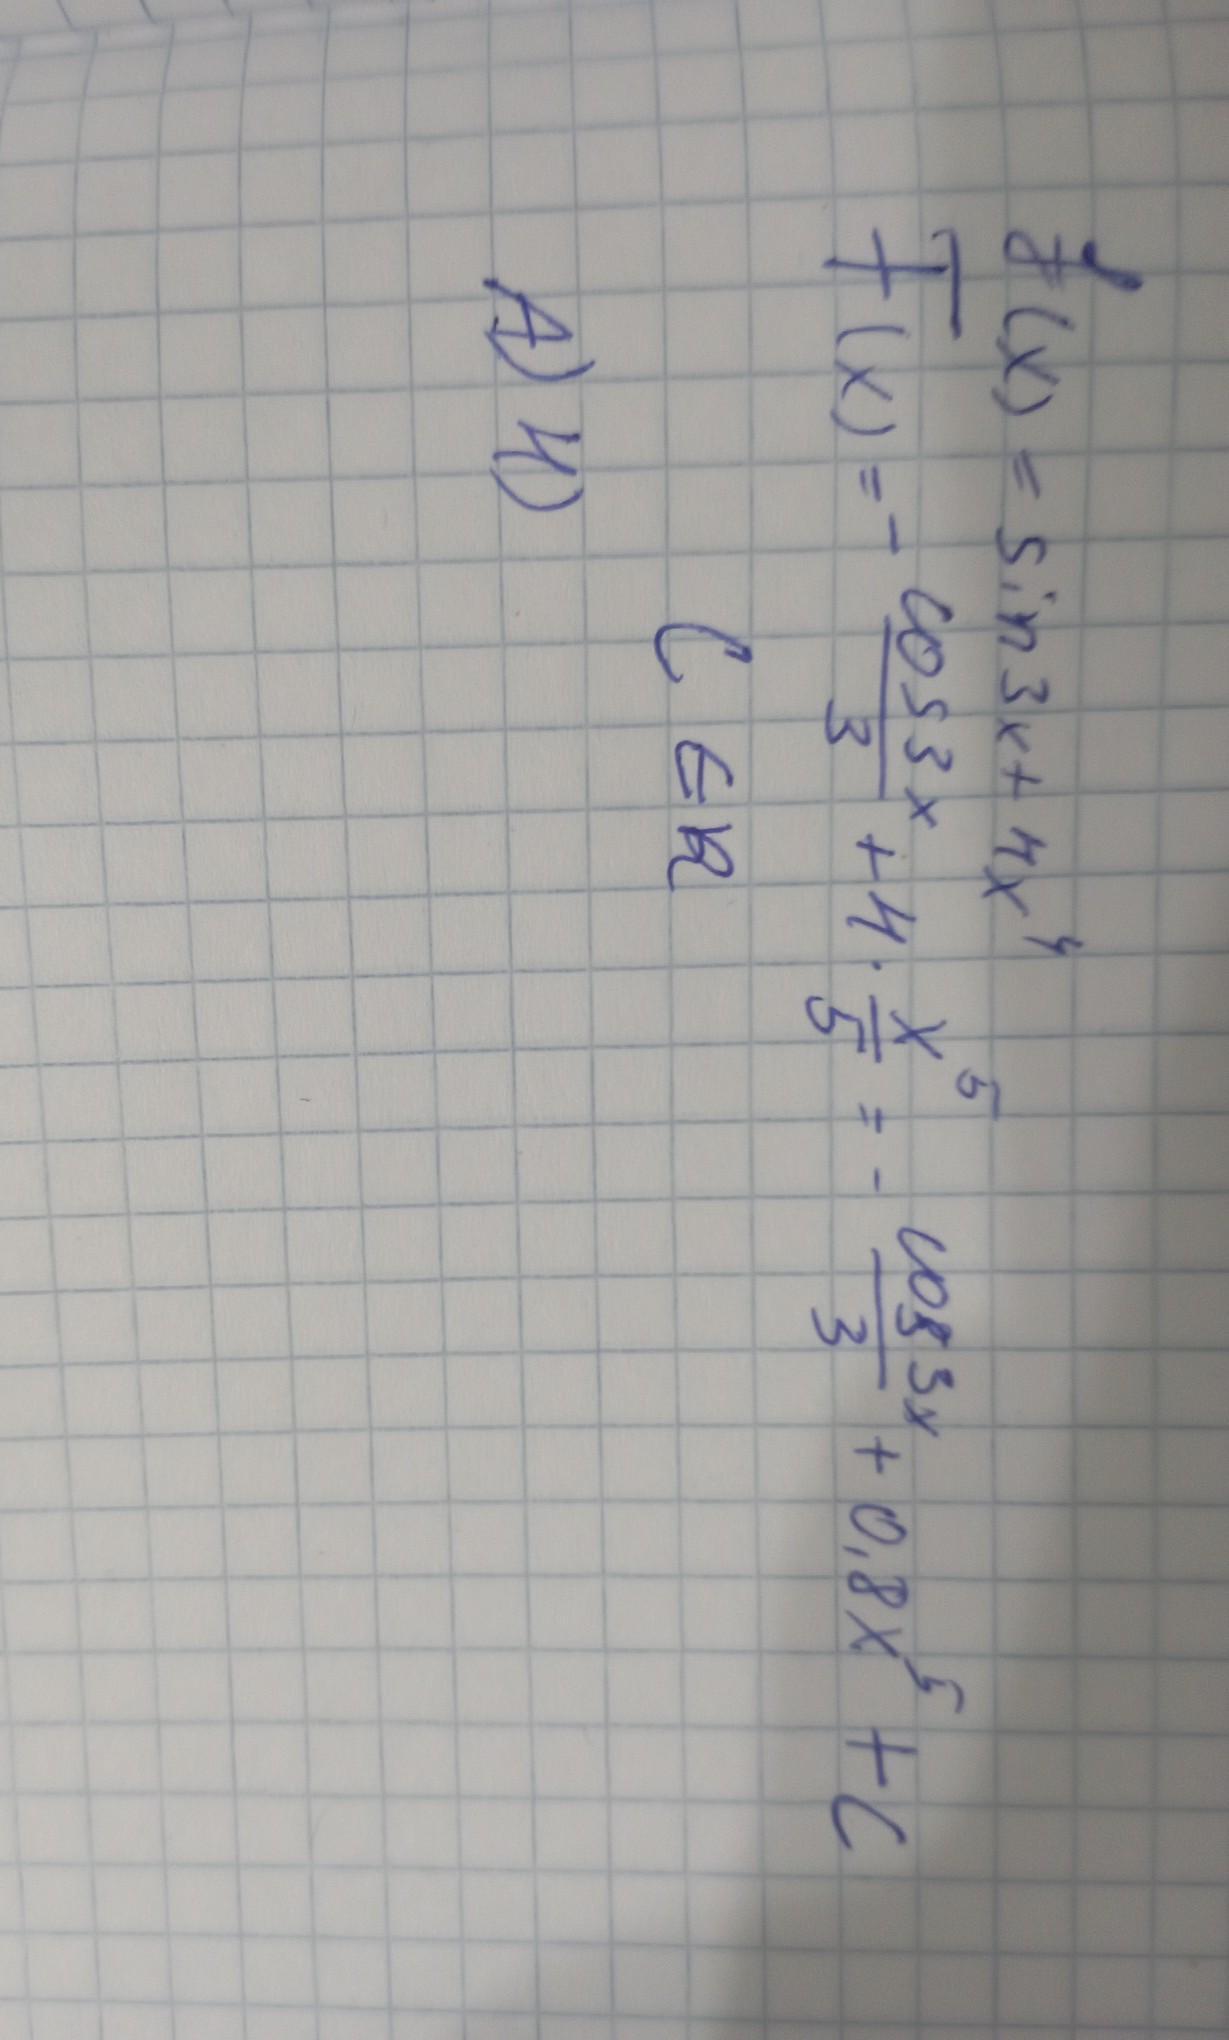 f(x) = sin3x + 4x⁴
F(x) = - cos3x/3 + 4 · x⁵/5 = - cos3x/3 + 0,8x⁵ + C
C ∈ R
A) 4)